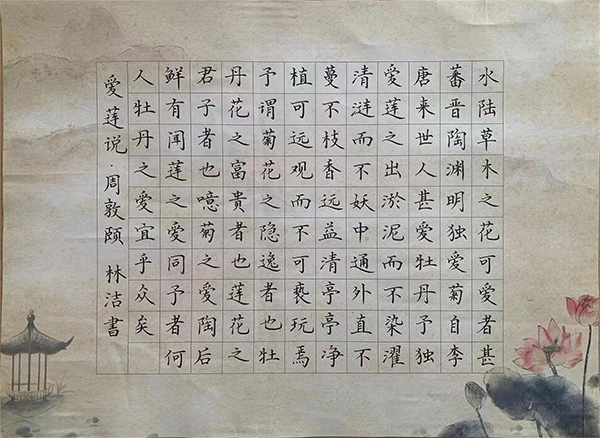 水陆草木之花可愛者甚
蕃晋陶渊明独愛菊自李
唐来世人甚愛牡丹予独
愛莲之出淤泥而不染濯
清涟而不妖中通外直不
蔓不枝香远益清亭亭净
植可远观而不可褻玩焉
予谓菊花之隐逸者也牡
丹花之富貴者也莲花之
君子者也噫菊之愛陶后
鲜有闻莲之愛同予者何
人牡丹之愛宜乎众矣
愛莲说·周敦颐 林洁書